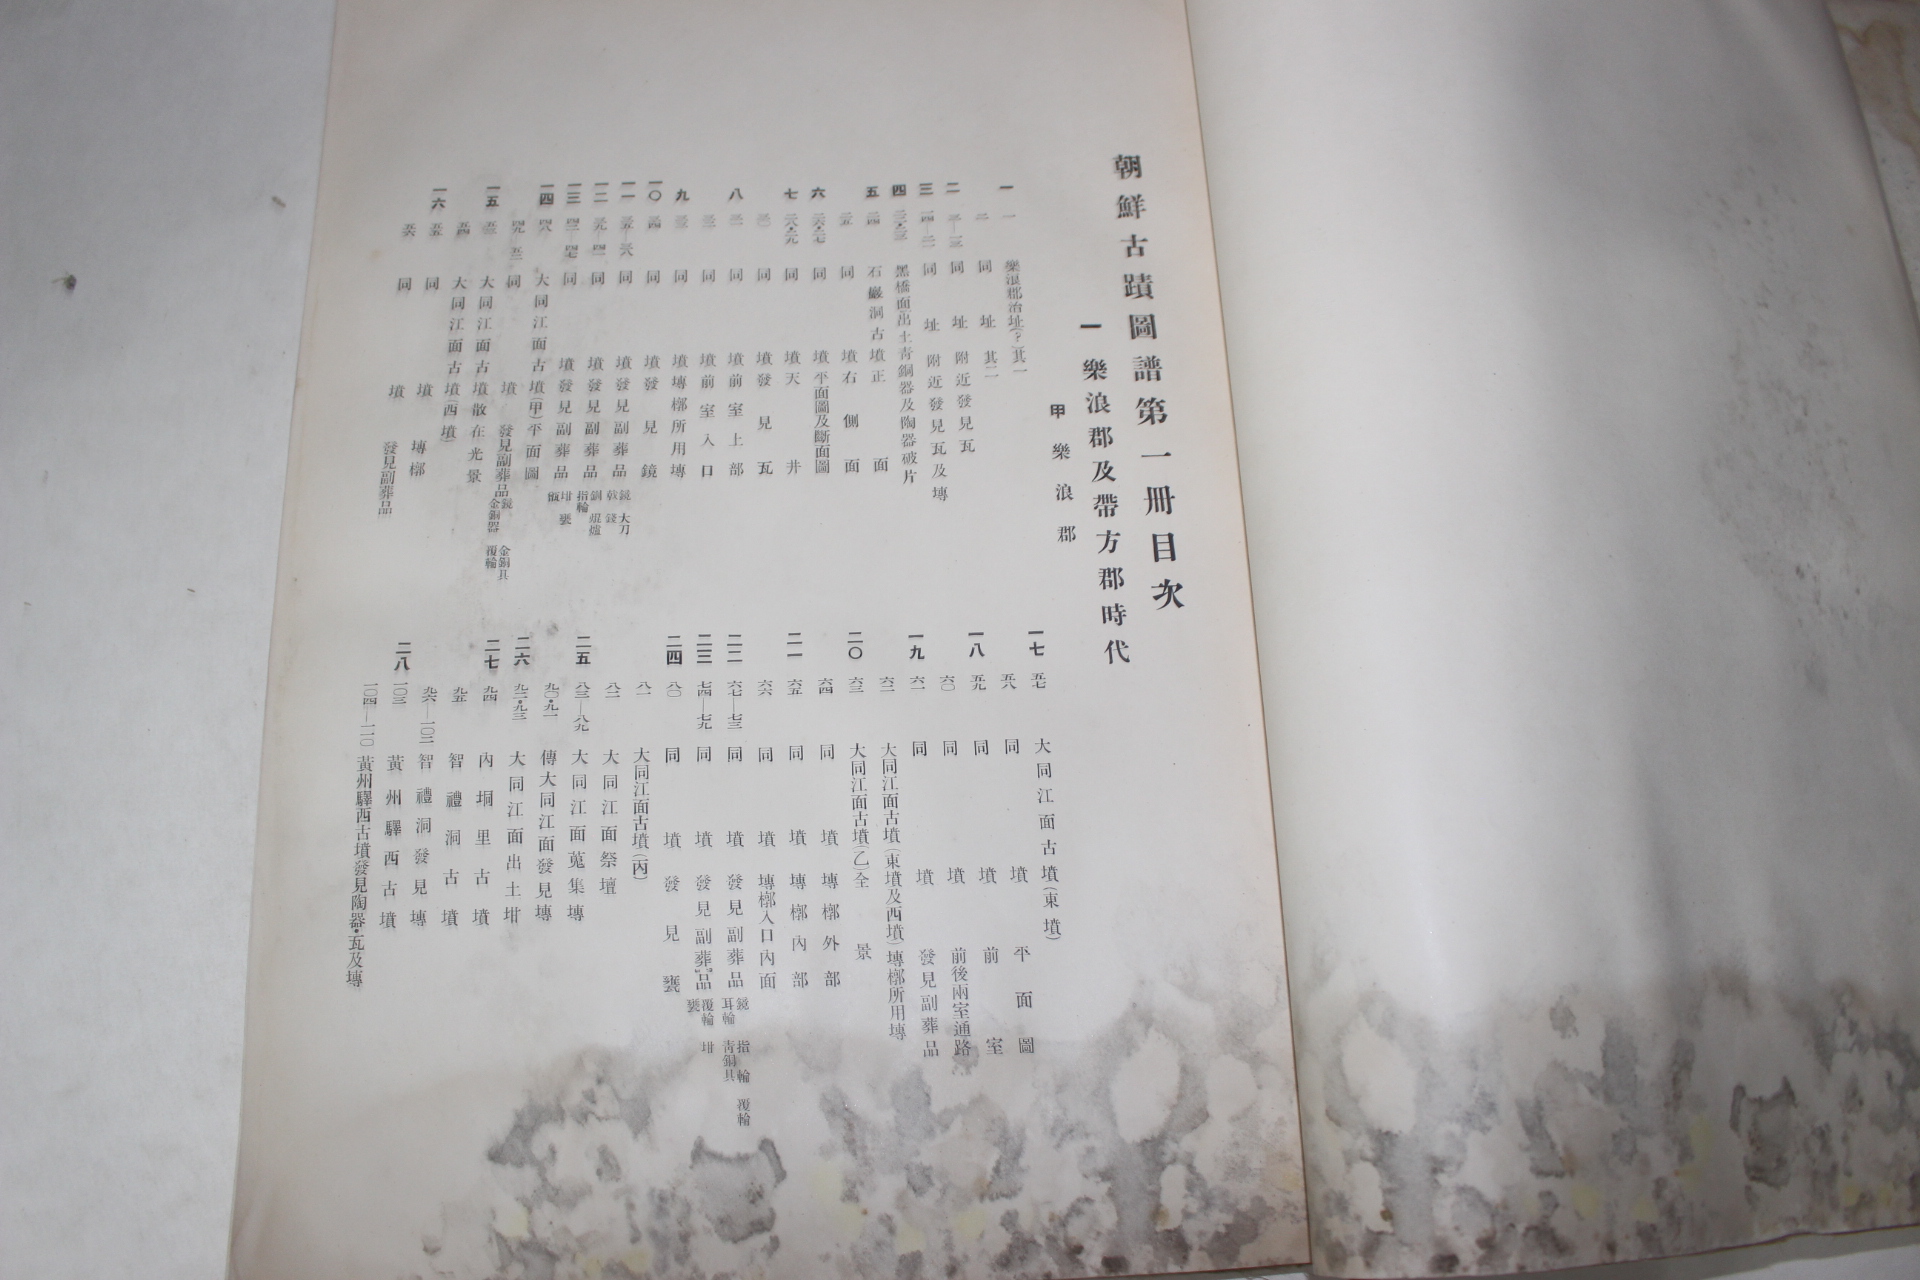 朝鮮古蹟圖譜第一冊目次
一 樂浪郡及帶方郡時代
甲 樂浪郡
一 一 樂浪郡治址(?)其一
二 同 址 其二
二 三—一三 同 址 附近發見瓦
三 一四—二一 同 址 附近發見瓦及塼
四 二二・二三 黑橋面出土青銅器及陶器破片
五 二四 石巖洞古墳正面
二五 同 墳右側面
六 二六・二七 同 墳平面圖及斷面圖
七 二八・二九 同 墳天井
三〇 同 墳發見瓦
八 三一 同 墳前室上部
三二 同 墳前室入口
九 三三 同 墳塼槨所用塼
一〇 三四 同 墳發見鏡
一一 三五—三八 同 墳發見副葬品 鏡 大刀 戟 錢
一二 三九—四一 同 墳發見副葬品 釧 焜爐 指輪
一三 四二—四七 同 墳發見副葬品 坩 甕 甑
一四 四八 大同江面古墳(甲)平面圖
四九—五二 同 墳 發見副葬品 鏡 金銅具 金銅器 覆輪
一五 五三 大同江面古墳散在光景
五四 大同江面古墳(西墳)
一六 五五 同 墳 塼槨
五六 同 墳 發見副葬品
一七 五七 大同江面古墳(東墳)
五八 同 墳 平面圖
一八 五九 同 墳 前室
六〇 同 墳 前後兩室通路
一九 六一 同 墳 發見副葬品
六二 大同江面古墳(東墳及西墳)塼槨所用塼
二〇 六三 大同江面古墳(乙)全景
六四 同 墳 塼槨外部
二一 六五 同 墳 塼槨內部
六六 同 墳 塼槨入口內面
二二 六七—七三 同 墳 發見副葬品 鏡 指輪 覆輪 耳輪 青銅具
二三 七四—七九 同 墳 發見副葬品 覆輪 坩 甕
二四 八〇 同 墳 發見甕
八一 大同江面古墳(丙)
八二 大同江面祭壇
二五 八三—八九 大同江面蒐集塼
九〇・九一 傳大同江面發見塼
二六 九二・九三 大同江面出土坩
二七 九四 內垌里古墳
九五 智禮洞古墳
九六—一〇二 智禮洞發見塼
二八 一〇三 黃州驛西古墳
一〇四—一一〇 黃州驛西古墳發見陶器・瓦及塼